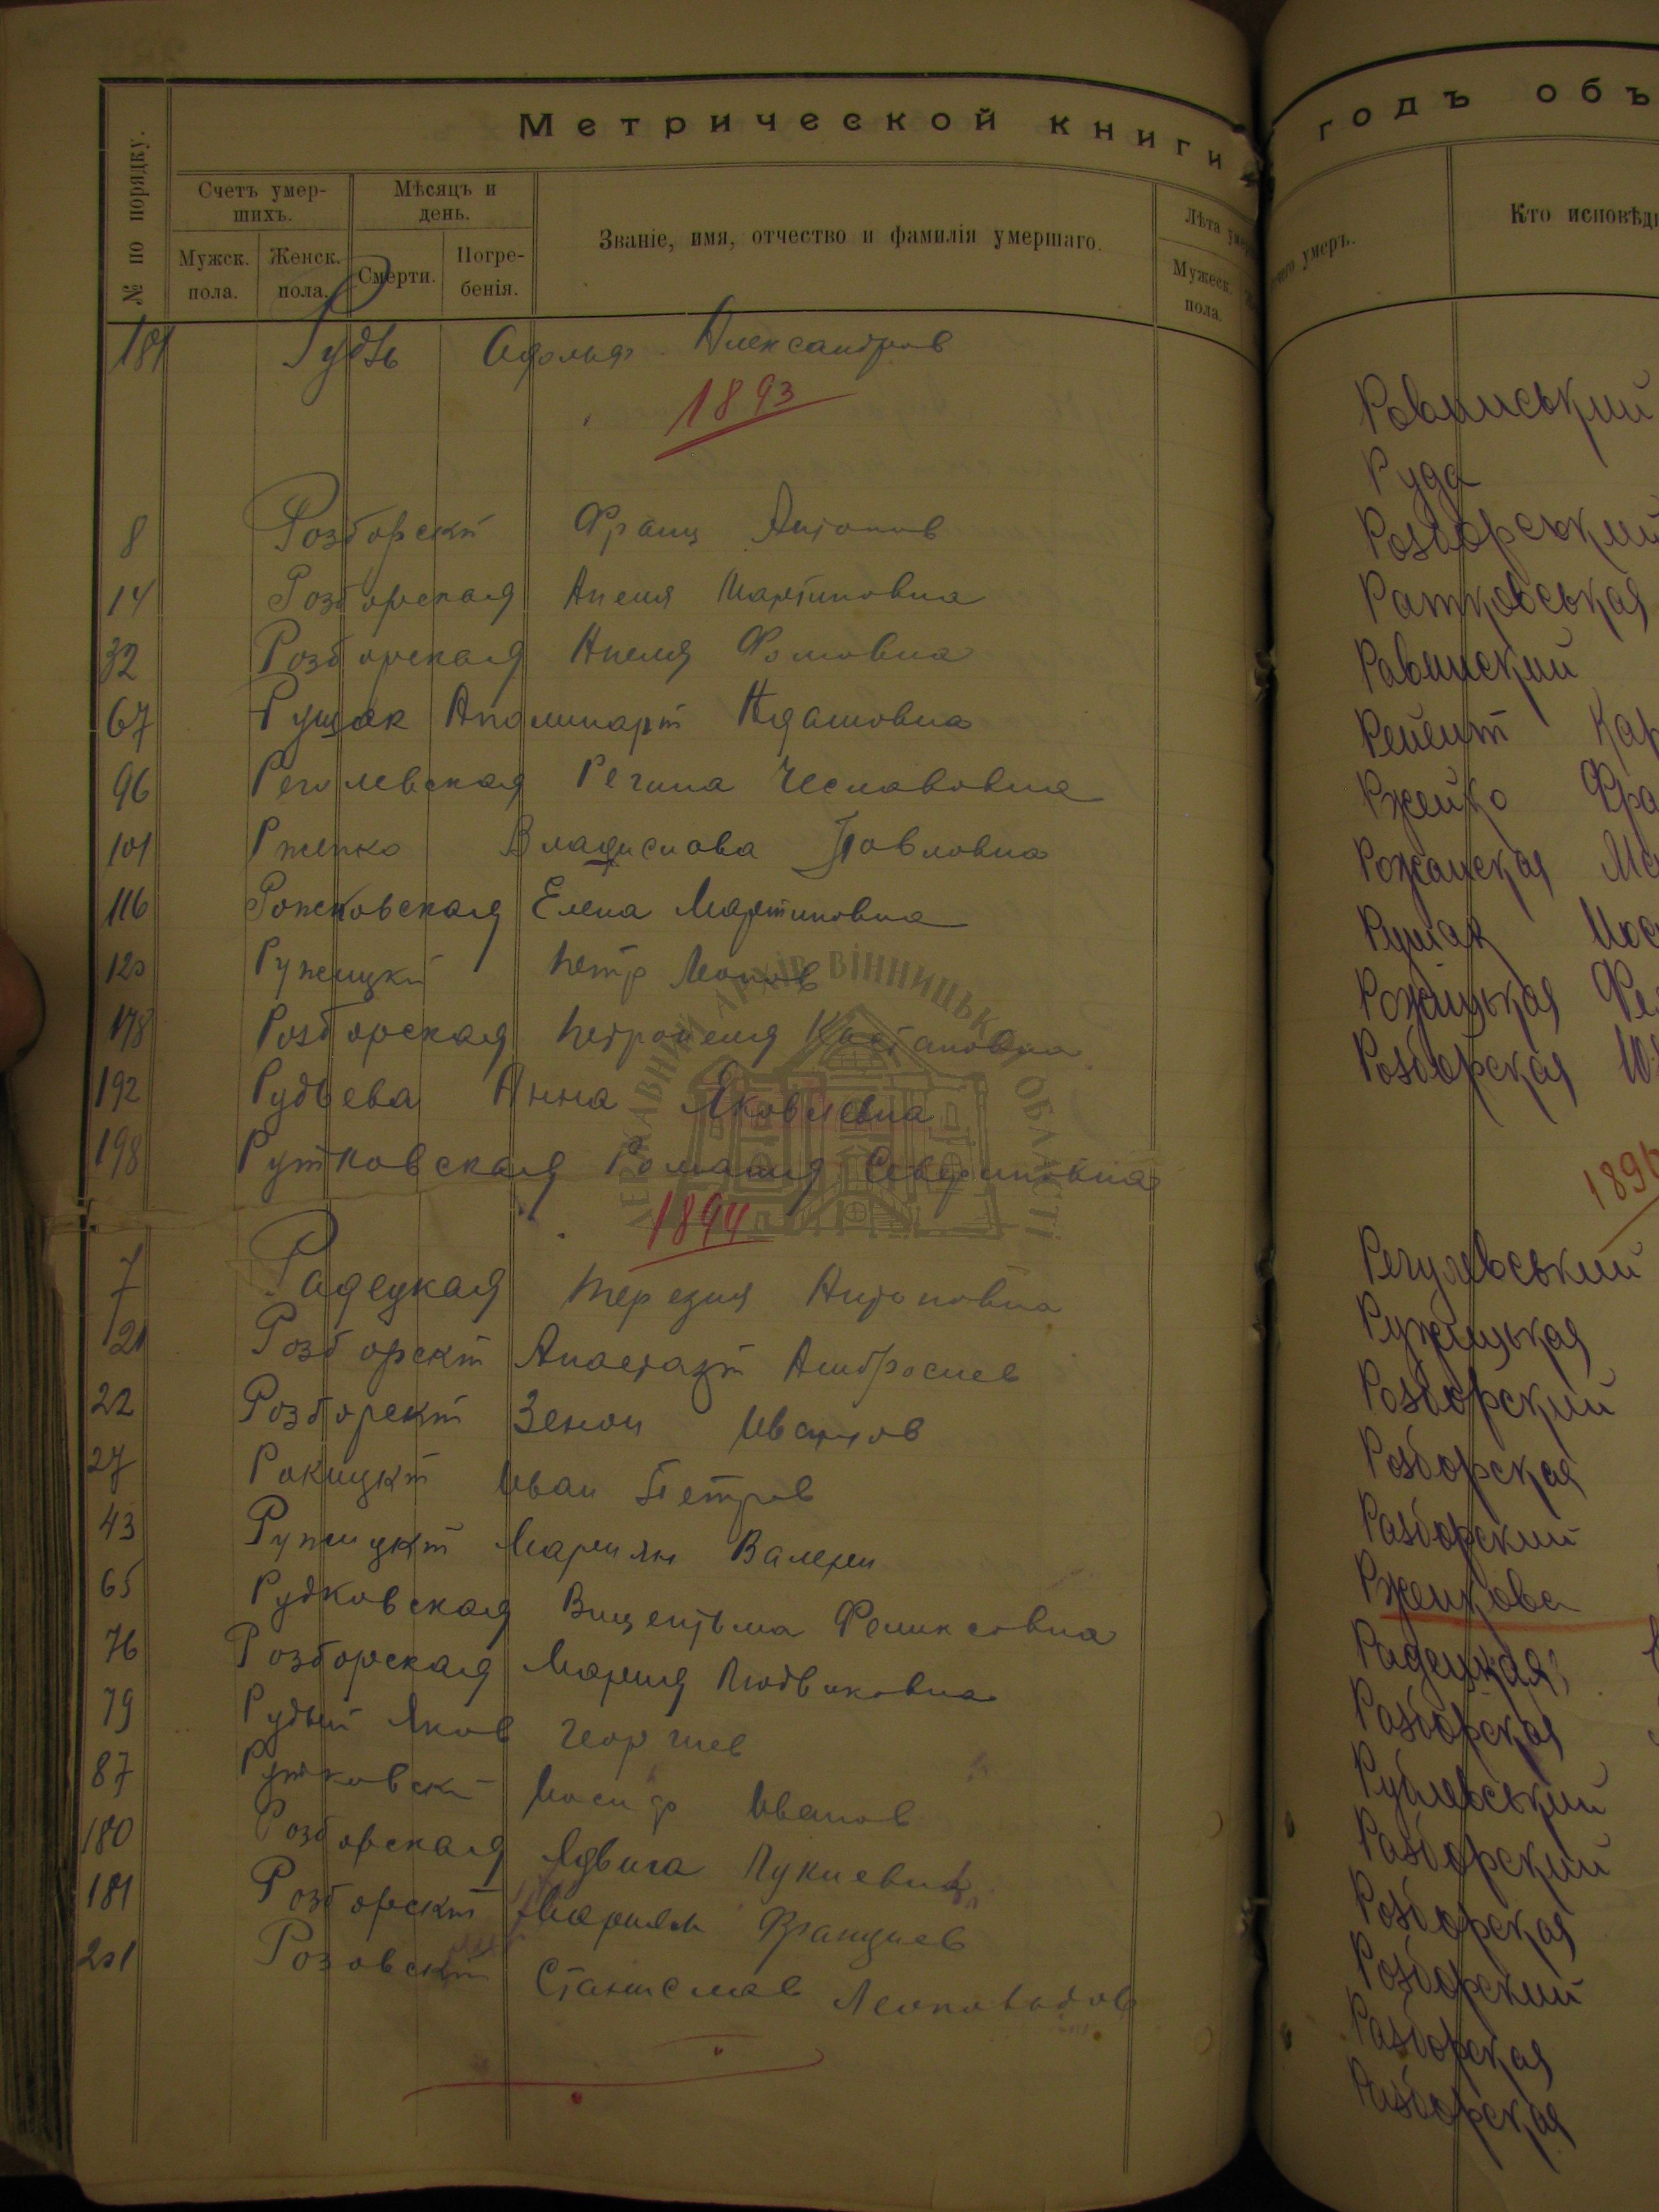 Метрической книги
№ по порядку.
Счетъ умер-
шихъ.
Мужск.
пола.
Женск.
пола.
Мѣсяцъ и
день.
Смерти.
Погре-
бенія.
Званіе, имя, отчество и фамилія умершаго.
Лѣта
Мужеск.
пола.
Рудь Адольф Александров
1893
8 Розборскій Франц Антонов
14 Розборская Анеля Мартиновна
32 Розборская Анеля Фомовна
67 Рущак Адамовна
96 Реголевская Регина Чеславовна
101 Владислова Павловна
116 Рожековская Елена Мартиновна
120 Ружицкій Петр
178 Розборская Петронеля
192 Рудьева Анна Яковлевна
198 Рутковская Романия Севериновна
1894
7 Радецкая Терезия Антоновна
21 Розборскій Анастазій Амбросиев
22 Розборскій Зенон Иванов
27 Рокицкій Иван Петров
43 Ружицкій Мариян Валери
65 Рудковская Феликсовна
76 Розборская Мария Людвиковна
79 Рудый Яков Георгиев
87 Рутковскі Иосиф Иванов
180 Розборская Ядвига Лукиевна
181 Розборскій Мариян Францiев
201 Розовскій Станислав Леопольдов
ДЕРЖАВНИЙ АРХІВ ВІННИЦЬКОЇ ОБЛАСТІ
годъ объ
чего умеръ.
Кто исповѣд
Руда
Розборський
Ратковськая
Равинский
Рейент Кар
Ржейко Фра
Рожанская
Рущак Иос
Розборская
1896
Регулевський
Ружицькая
Розборский
Розборская
Розборский
Радецкая
Розборская
Рублевський
Розборский
Розборская
Розборский
Розборская
Розборская